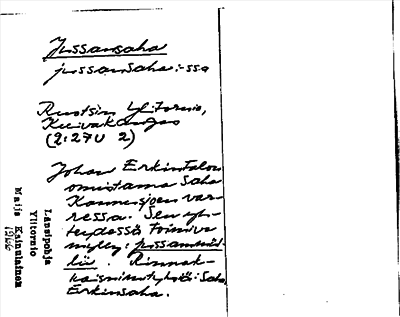 Jussansaha
jussansaha: -ssa
Ruotsin Ylitornio,
Kuivakangas
(2:27U 2)
Johan Erkintalon
omistama saha
Kaunisjoen var-
ressa. Sen yh-
teydessä toimiva
mylly: jussanmyl-
ly. Rinnak-
kaisnimityksiä: Saha,
Erkinsaha.
Länsipohja
Ylitornio
Maija Kainulainen
1966